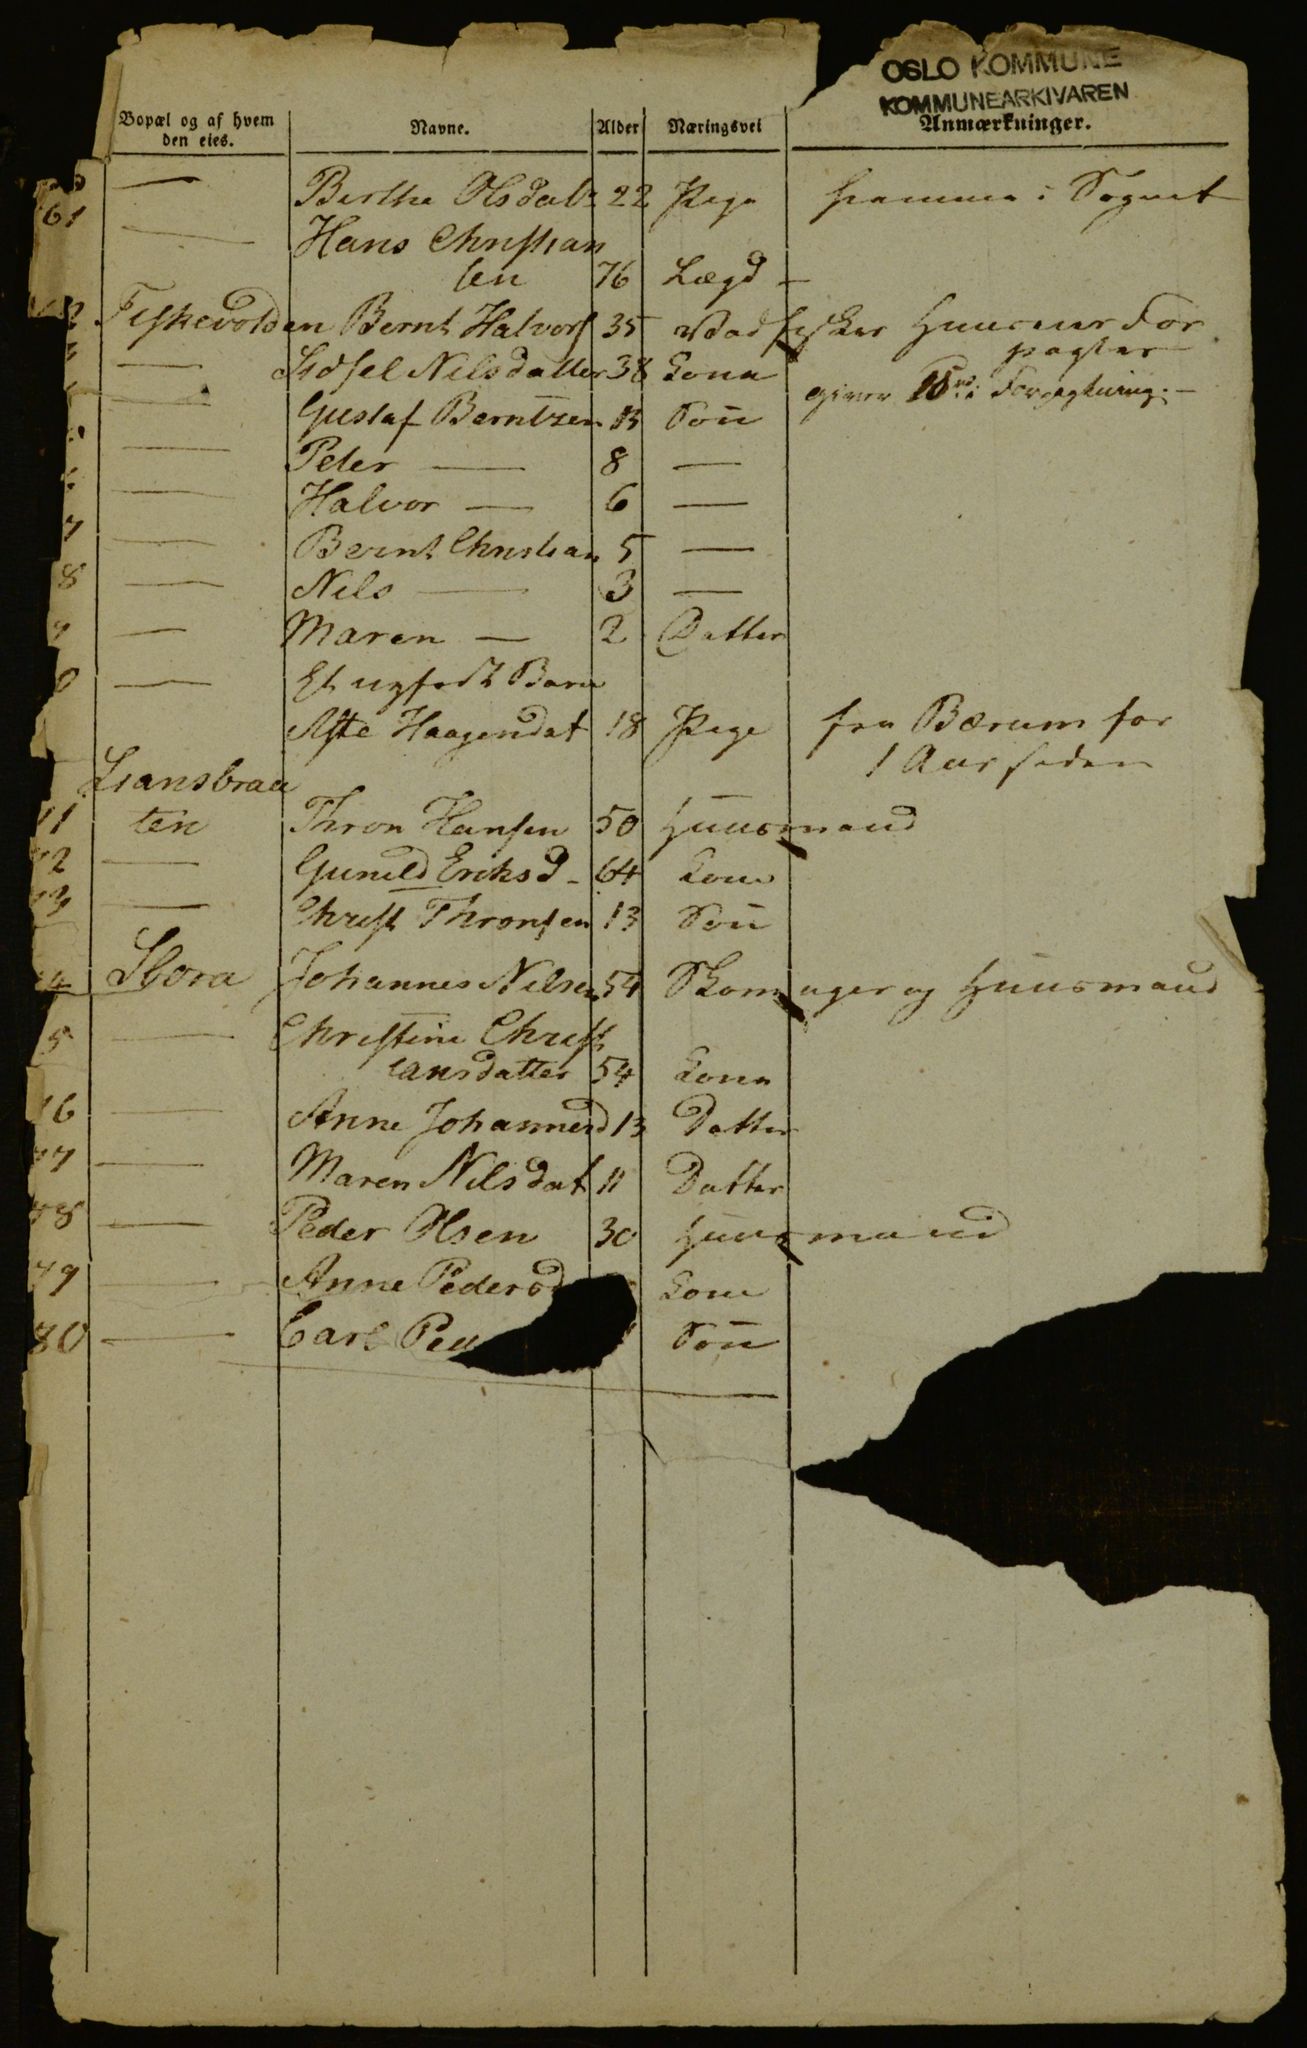 OSLO KOMMUNE
KOMMUNEARKIVAREN
Bopæl og af hvem den eies. Navne. Alder Næringsvei Anmærkninger.
— Berthe Olsdatr 22 Pige hjemme i Sognet
61 — Hans Christian
sen 76 Lægd —
2 Fiskevolden Bernt Halvors 35 Vadfisker Huusmer For
pagter
— Sidsel Nilsdatter 38 Kona giver i Forpagtning. —
— Gustaf Berntzen 13 Søn
— Peter — 8 —
— Halvor — 6 —
7 — Bernt Christian 5 —
8 — Nils — 3 —
9 — Maren — 2 Datter
0 — Et nyfødt Barn
Aste Haagendat 18 Pige fra Bærum for
1 Aar siden
Liansbraa
11 ten Thron Hansen 50 Huusmand
12 — Gunild Eriksd — 64 Kone
13 — Christ Thronsen 13 Søn
4 Stora Johannes Nilsen 54 Skomager og Huusmand
5 — Christine Christ
iansdatter 54 Kona
76 — Anne Johannesd 13 Datter
77 — Maren Nilsdat 11 Datter
78 — Peder Olsen 30 Huusmand
79 — Anne Pedersd Kone
80 — Carl Ped Søn